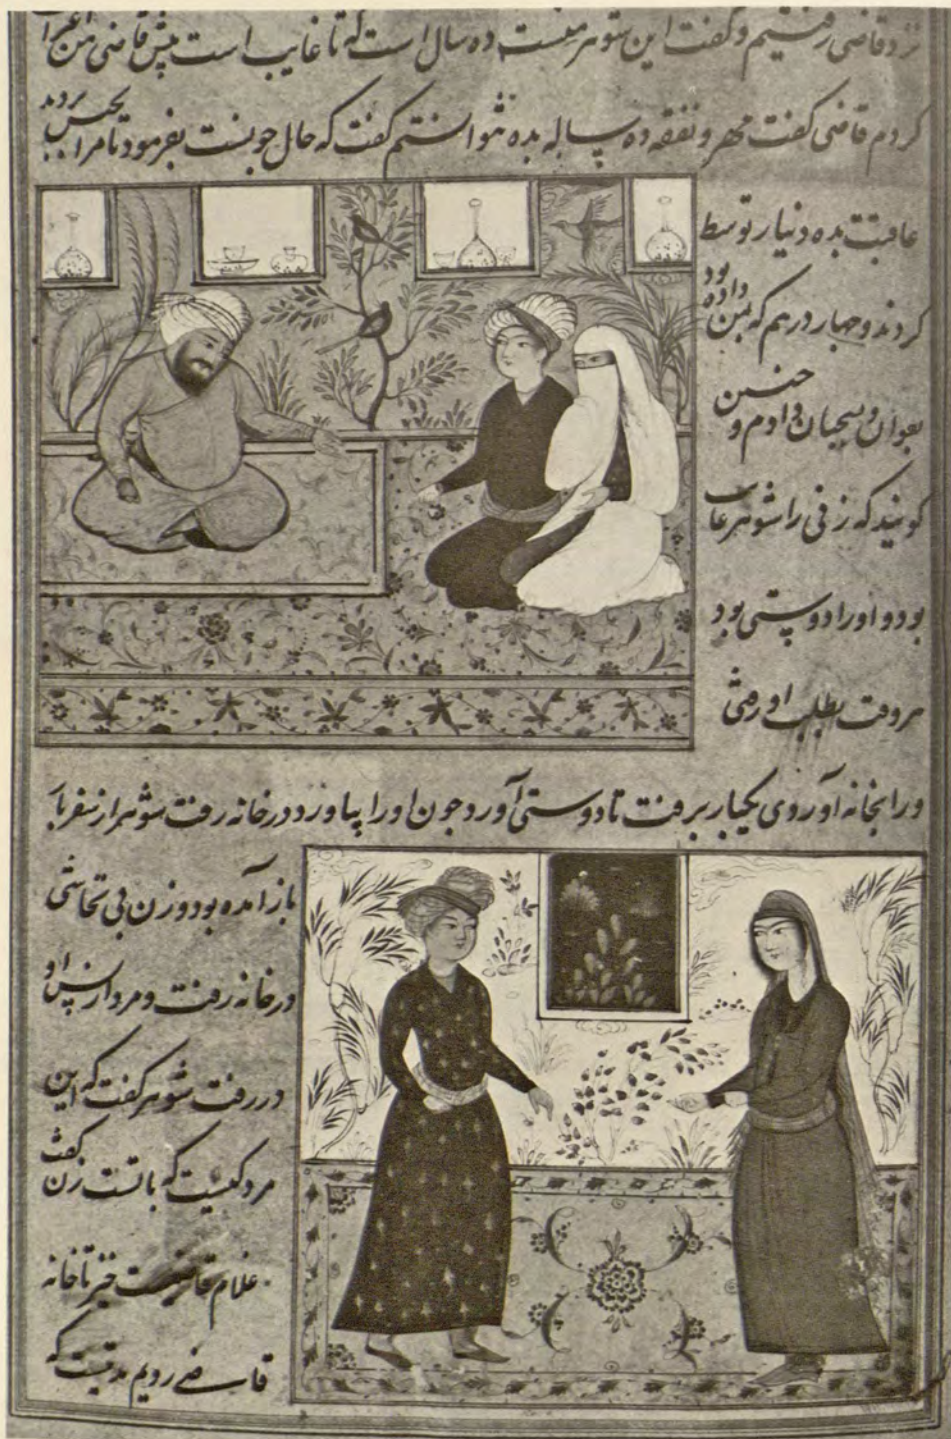 نزد قاضی رفتیم و گفت این شوهر منست ده سال است که تا غایب است پیش قاضی من اعراف
کردم قاضی گفت مهر و نفقه ده ساله بده نتوانستم گفت که حال جونست بفرمود تا مرا بحبس بردند
عاقبت بده دینار توسط
کردند و چهار درهم که بمن داده بود
بعوان و سجان دادم و چنین
کویند که زنی را شوهر غایب
بود و او را دوستی بود
هر وقت بطلب او رفتی
و را بخانه آوردی یکبار برفت تا دوستی آورد جون او را بیاورد در خانه رفت شوهر از سفر با
باز آمده بود و زن بی تحاشی
در خانه رفت و مرد از پس او
در رفت شوهر گفت که این
مرد کیست که با تست زن گفت
غلام قاضیست خیز تا خانه
قاضی رویم مدتیست که